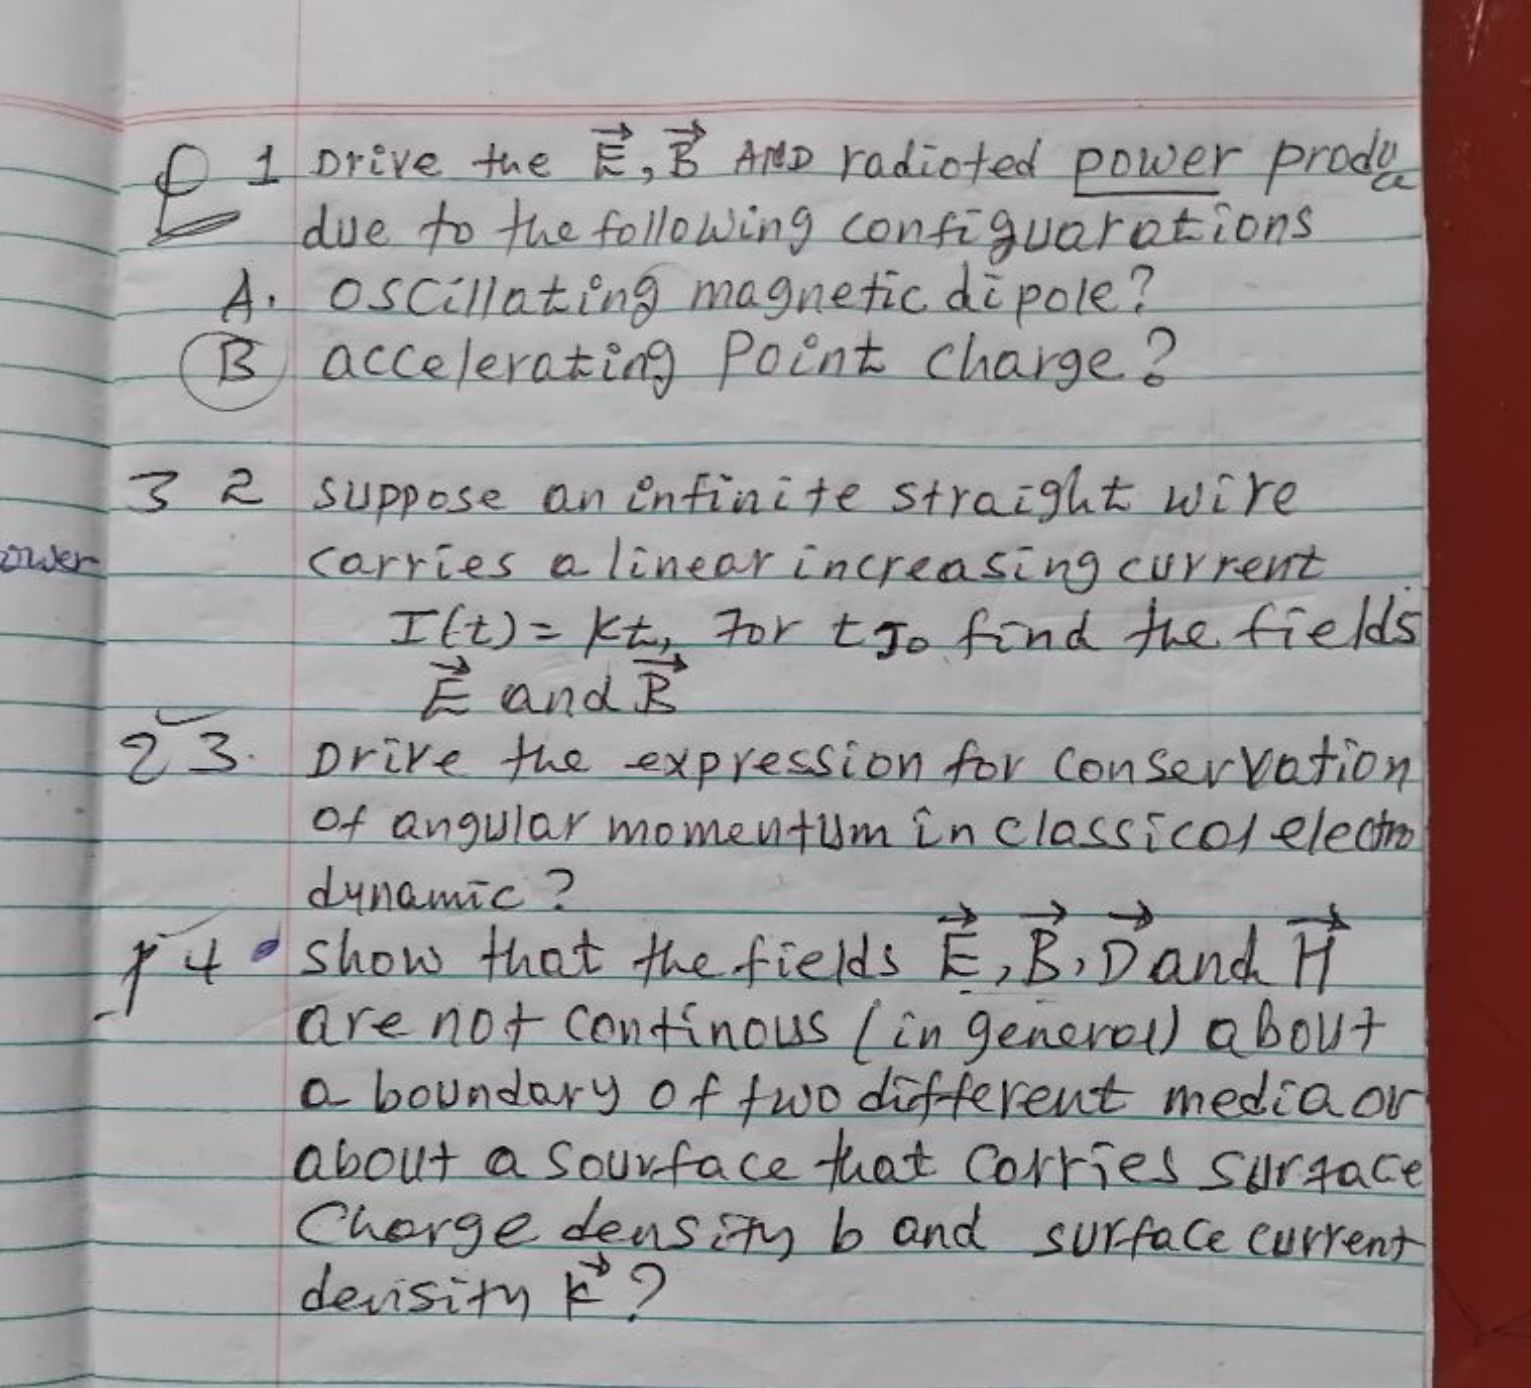 1 Drive the E, B AND radioted power produ
due to the following configuarations
A. oscillating magnetic dipole?
B accelerating Point charge?
3 2 suppose an infinite straight wire
ower carries a linear increasing current
I(t) = kt, For t>0 find the fields
E and B
2 3. Drive the expression for conservation
of angular momentum in classical electro
dynamic?
4 show that the fields E, B, D and H
are not continous (in general) about
a boundary of two different media or
about a sourface that carries surface
Charge density b and surface current
density k?